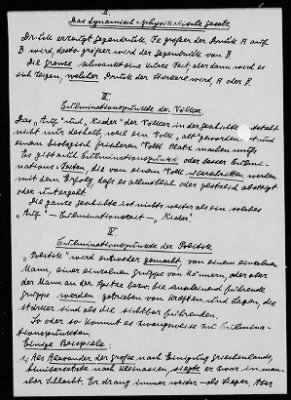 II.
Das dynamisch-physikalische Gesetz.
Druck erzeugt Gegendruck. Je größer der Druck A auf
B wird, desto größer wird der Gegendruck von B.
Die Grenze schwankt eine kurze Zeit, aber dann wird es
sich zeigen, welcher Druck der stärkere wird, A oder B.
III.
Kulminationspunkte der Völker.
Das „Auf“ und „Nieder“ der Völker in der Geschichte
nicht nur deshalb, weil ein Volk „alt“ geworden ist und
einem biologisch frischeren Volk Platz machen muß.
Es gibt auch Kulminationspunkte oder besser Kulmi-
nations-Zeiten, die von einem Volk überschritten werden
mit dem Erfolg, daß es allmählich oder absteigt
oder untergeht.
Die ganze Geschichte ist nichts weiter als ein solches
„Auf“ – Kulminationszeit –, Nieder.
IV.
Kulminationspunkte der Politik.
„Politik“ wird entweder gemacht, von einem einzelnen
Mann, einer einzelnen Gruppe von Männern, oder aber
der Mann an der Spitze bezw. die führende
Gruppe werden getrieben von Kräften und Lagen, die
stärker sind als die sichtbar führenden.
So oder so kommt es zwangsweise zu Kulmina-
tionspunkten.
Einige Beispiele:
1) Als Alexander der Große nach Einigung Griechenlands,
nach Kleinasien, siegte er zwar in man-
cher Schlacht. Er drang immer weiter – als Sieger, aber